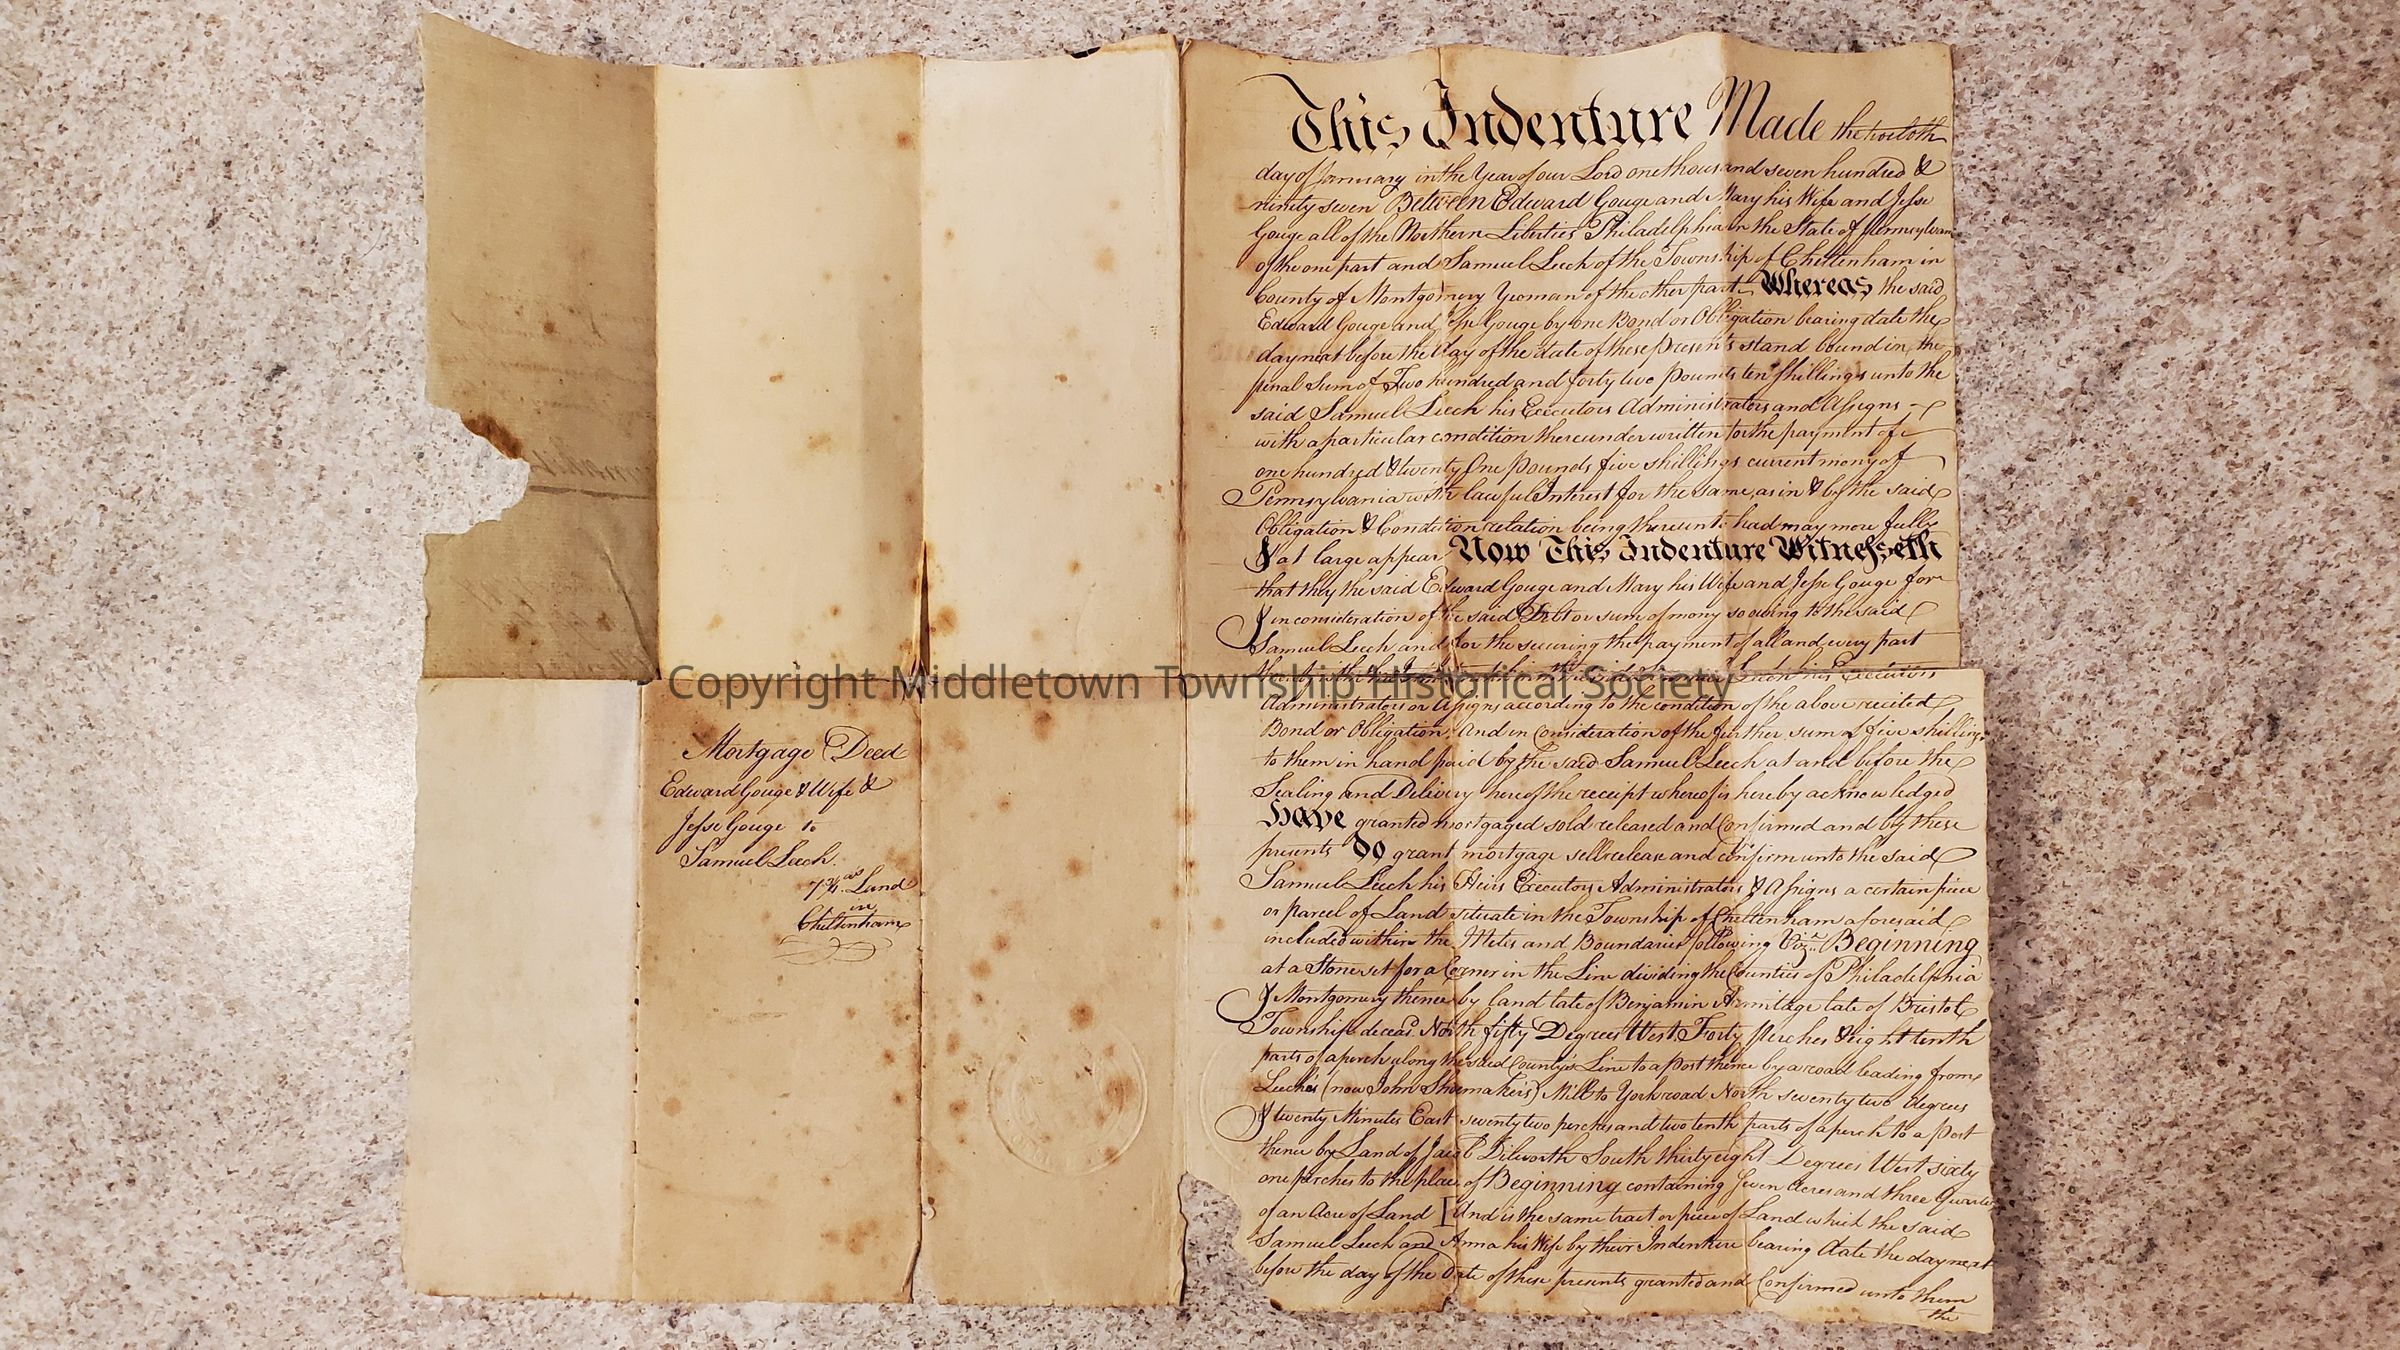 Mortgage Deed
Edward Gouge & Wife &
Jesse Gouge to
Samuel Leech.
7¾ as Land
in
Cheltenham
This Indenture Made the twelfth
day of January in the Year of our Lord one thousand seven hundred &
ninety seven Between Edward Gouge and Mary his Wife and Jesse
Gouge all of the Northern Liberties Philadelphia in the State of Pennsylvan
of the one part and Samuel Leech of the Township of Cheltenham in
County of Montgomery Yeoman of the other part Whereas the said
Edward Gouge and Jesse Gouge by one Bond or Obligation bearing date the
day next before the day of the date of these presents stand bound in the
penal Sum of Two hundred and forty two pounds ten shillings unto the
said Samuel Leech his Executors Administrators and Assigns
with a particular condition thereunder written for the payment of
one hundred & twenty One pounds five shillings current mony of
Pennsylvania with lawful Interest for the same, as in & by the said
Obligation & Condition relation being thereunto had may more fully
& at large appear Now This Indenture Witnesseth
that they the said Edward Gouge and Mary his Wife and Jesse Gouge for
& in consideration of the said Debt or sum of mony so owing to the said
Samuel Leech and for the securing the payment of all and every part
Leech his Executors
Copyright Middletown Township Historical Society
Administrators or Assigns according to the condition of the above recited
Bond or Obligation And in Consideration of the further sum of five shillings
to them in hand paid by the said Samuel Leech at and before the
Sealing and Delivery hereof the receipt whereof is hereby acknowledged
Have granted mortgaged sold released and Confirmed and by these
presents Do grant mortgage sell release and confirm unto the said
Samuel Leech his Heirs Executors Administrators & Assigns a certain piece
or parcel of Land situate in the Township of Cheltenham aforesaid
included within the Metes and Boundaries following Viz. Beginning
at a Stone set for a Corner in the Line dividing the Counties of Philadelphia
& Montgomery thence by land late of Benjamin Armitage late of Bristol
Township deceas.d North fifty Degrees West Forty perches & eight tenth
parts of a perch along the said County's Line to a post thence by a road leading from
Leech's (now John Shoemaker's) Mill to York road North seventy two degrees
& twenty Minutes East seventy two perches and two tenth parts of a perch to a Post
thence by Land of Jacob Dilworth South thirty eight Degrees West sixty
one perches to the place of Beginning containing Seven Acres and three Quarters
of an Acre of Land [And is the same tract or piece of Land which the said
Samuel Leech and Anna his Wife by their Indenture bearing date the day next
before the day of the date of these presents granted and Confirmed unto them
the